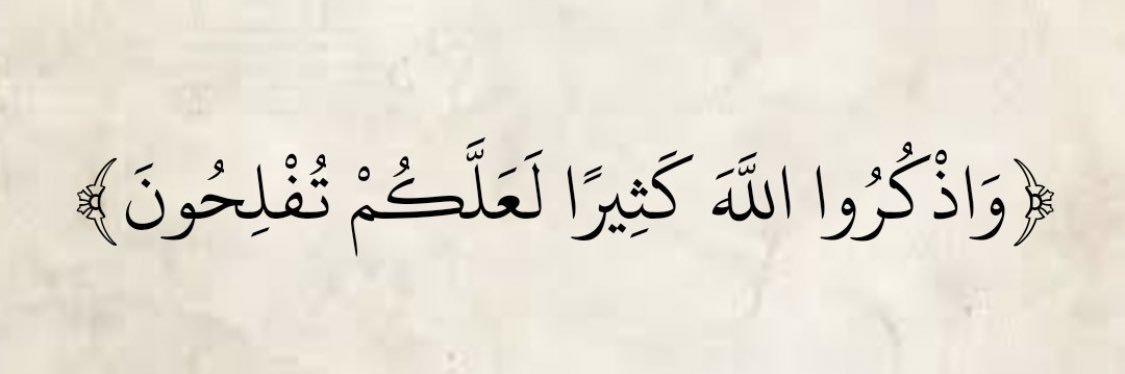 ﴿وَاذْكُرُوا اللَّهَ كَثِيرًا لَعَلَّكُمْ تُفْلِحُونَ﴾